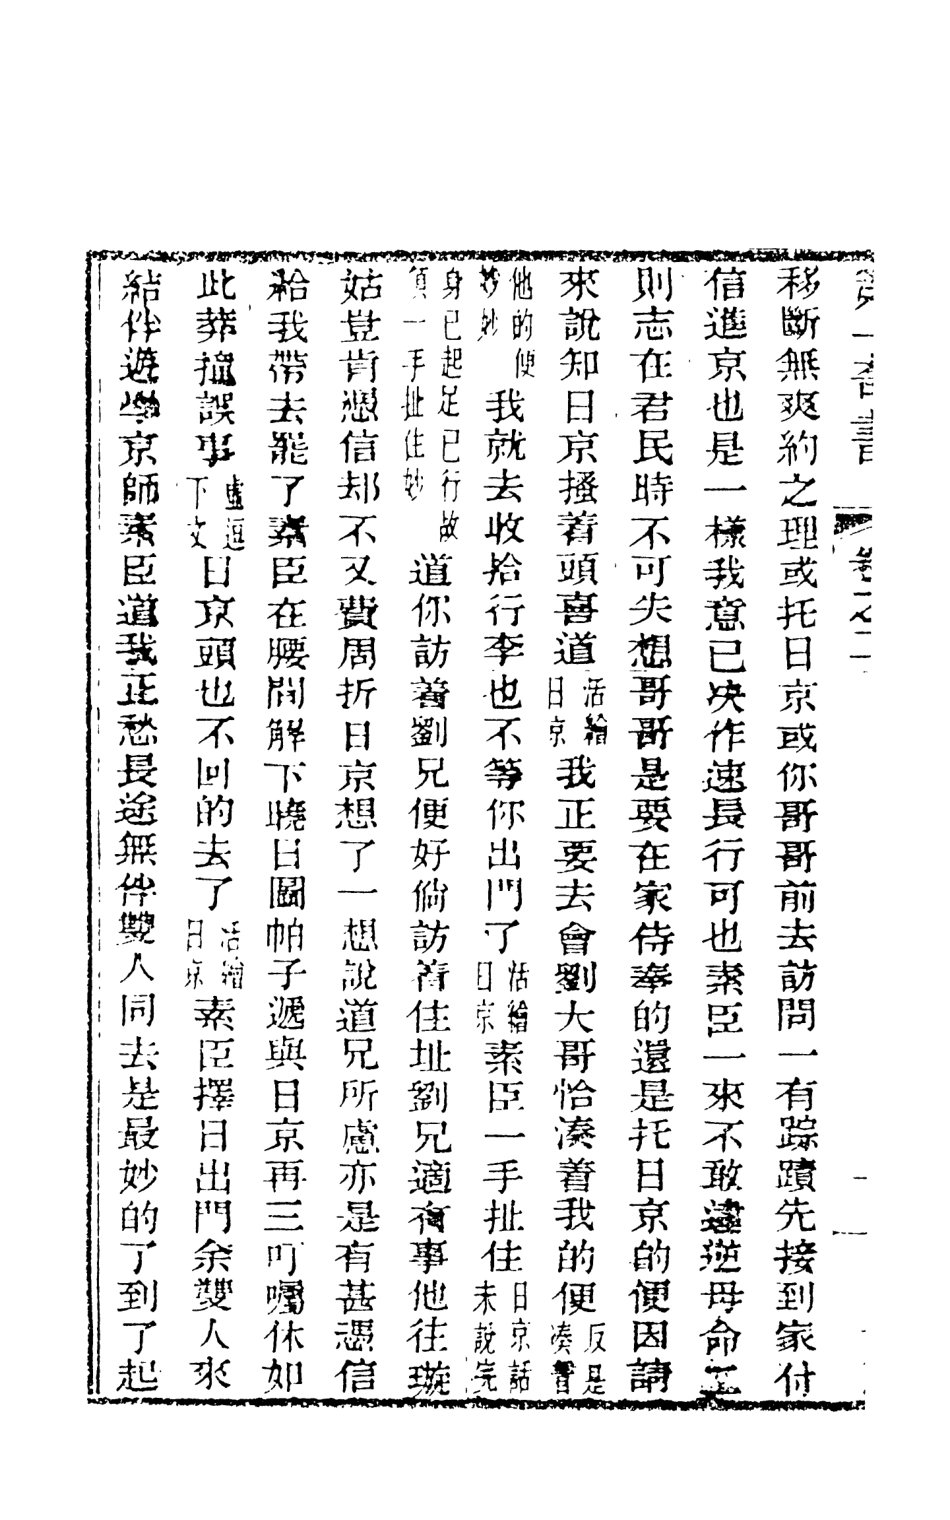 第一奇書 卷之二
移斷無爽約之理或托日京或你哥哥前去訪問一有踪蹟先接到家付
信進京也是一樣我意已决作速長行可也素臣一來不敢違逆母命二
則志在君民時不可失想哥哥是要在家侍奉的還是托日京的便因請
來說知日京搔着頭喜道活繪日京我正要去會劉大哥恰湊着我的便反是湊着
他的便妙妙我就去收拾行李也不等你出門了活繪日京素臣一手扯住日京話未說完
身已起足已行故須一手扯住妙道你訪着劉兄便好倘訪着住址劉兄適有事他往璇
姑豈肯憑信却不又費周折日京想了一想說道兄所慮亦是有甚憑信
給我帶去罷了素臣在腰間解下曉日圖帕子遞與日京再三叮囑休如
此莽撞誤事虛逗下文日京頭也不回的去了活繪日京素臣擇日出門余雙人來
結伴遊學京師素臣道我正愁長途無伴雙人同去是最妙的了到了起